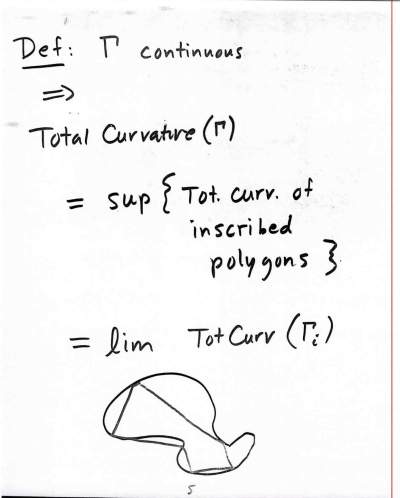 Def: Γ continuous
⇒
Total Curvature (Γ)
= sup { Tot. curv. of
inscribed
polygons }
= lim Tot Curv (Γᵢ)
5